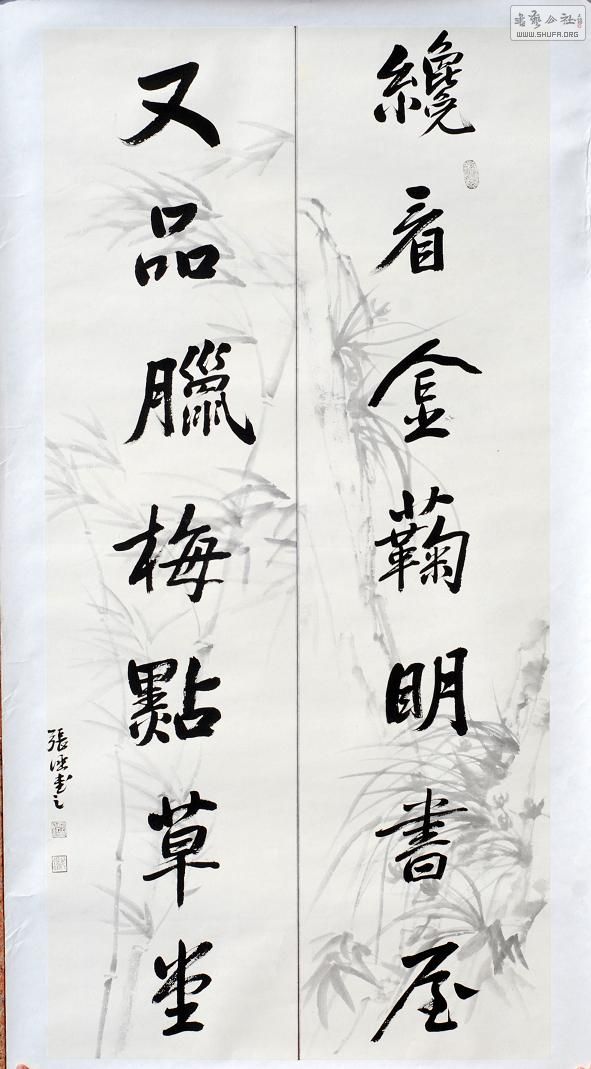 書藝公社
WWW.SHUFA.ORG
纔看金蘜明書屋
又品臘梅點草堂
張書之